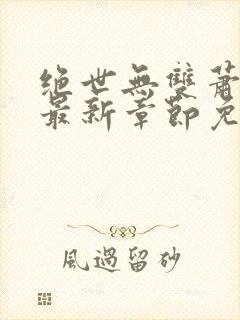 絕世無雙蕭
最新章節免
風過留砂